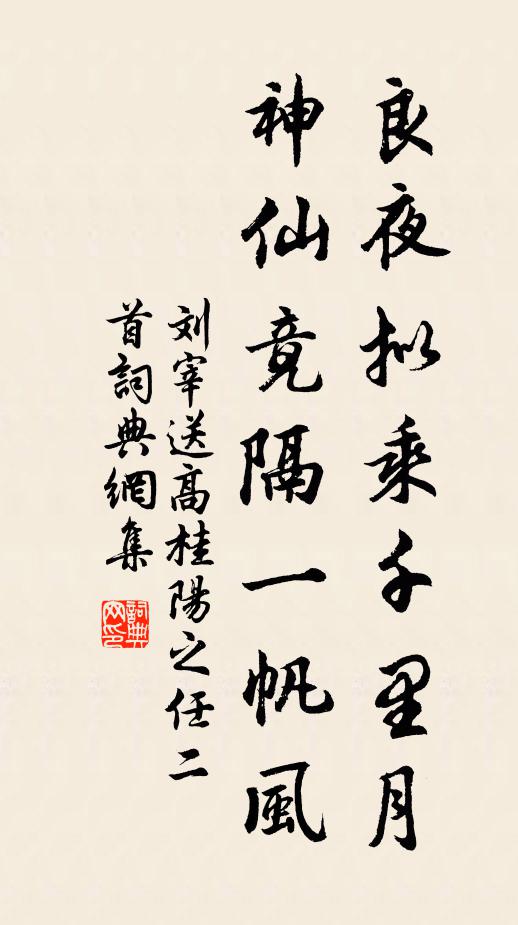 良夜拟乘千里月
神仙竟隔一帆風
刘宰送高桂陽之任二
首詞典網集
詞典
网印